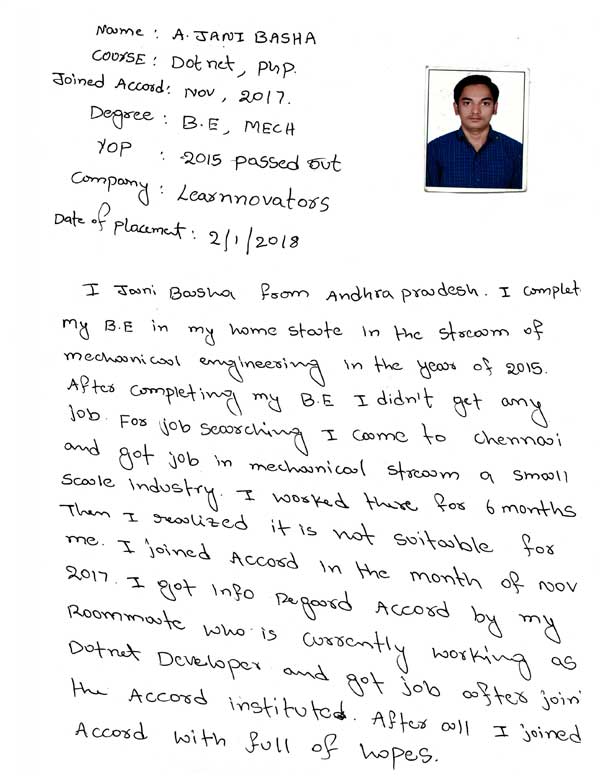 Name : A. JANI BASHA
COURSE : Dot net, PHP.
Joined Accord : Nov, 2017.
Degree : B.E, MECH
YOP : 2015 passed out
Company : Learnnovators
Date of placement : 2/1/2018
I Jani Basha from Andhra pradesh. I complet
my B.E in my home state in the stream of
mechanical engineering in the year of 2015.
After completing my B.E I didn't get any
job. For job searching I came to chennai
and got job in mechanical stream a small
scale industry. I worked there for 6 months
Then I realized it is not suitable for
me. I joined Accord in the month of nov
2017. I got info regard Accord by my
Roommate who is currently working as
Dotnet Developer and got job after join
the Accord instituted. After all I joined
Accord with full of hopes.